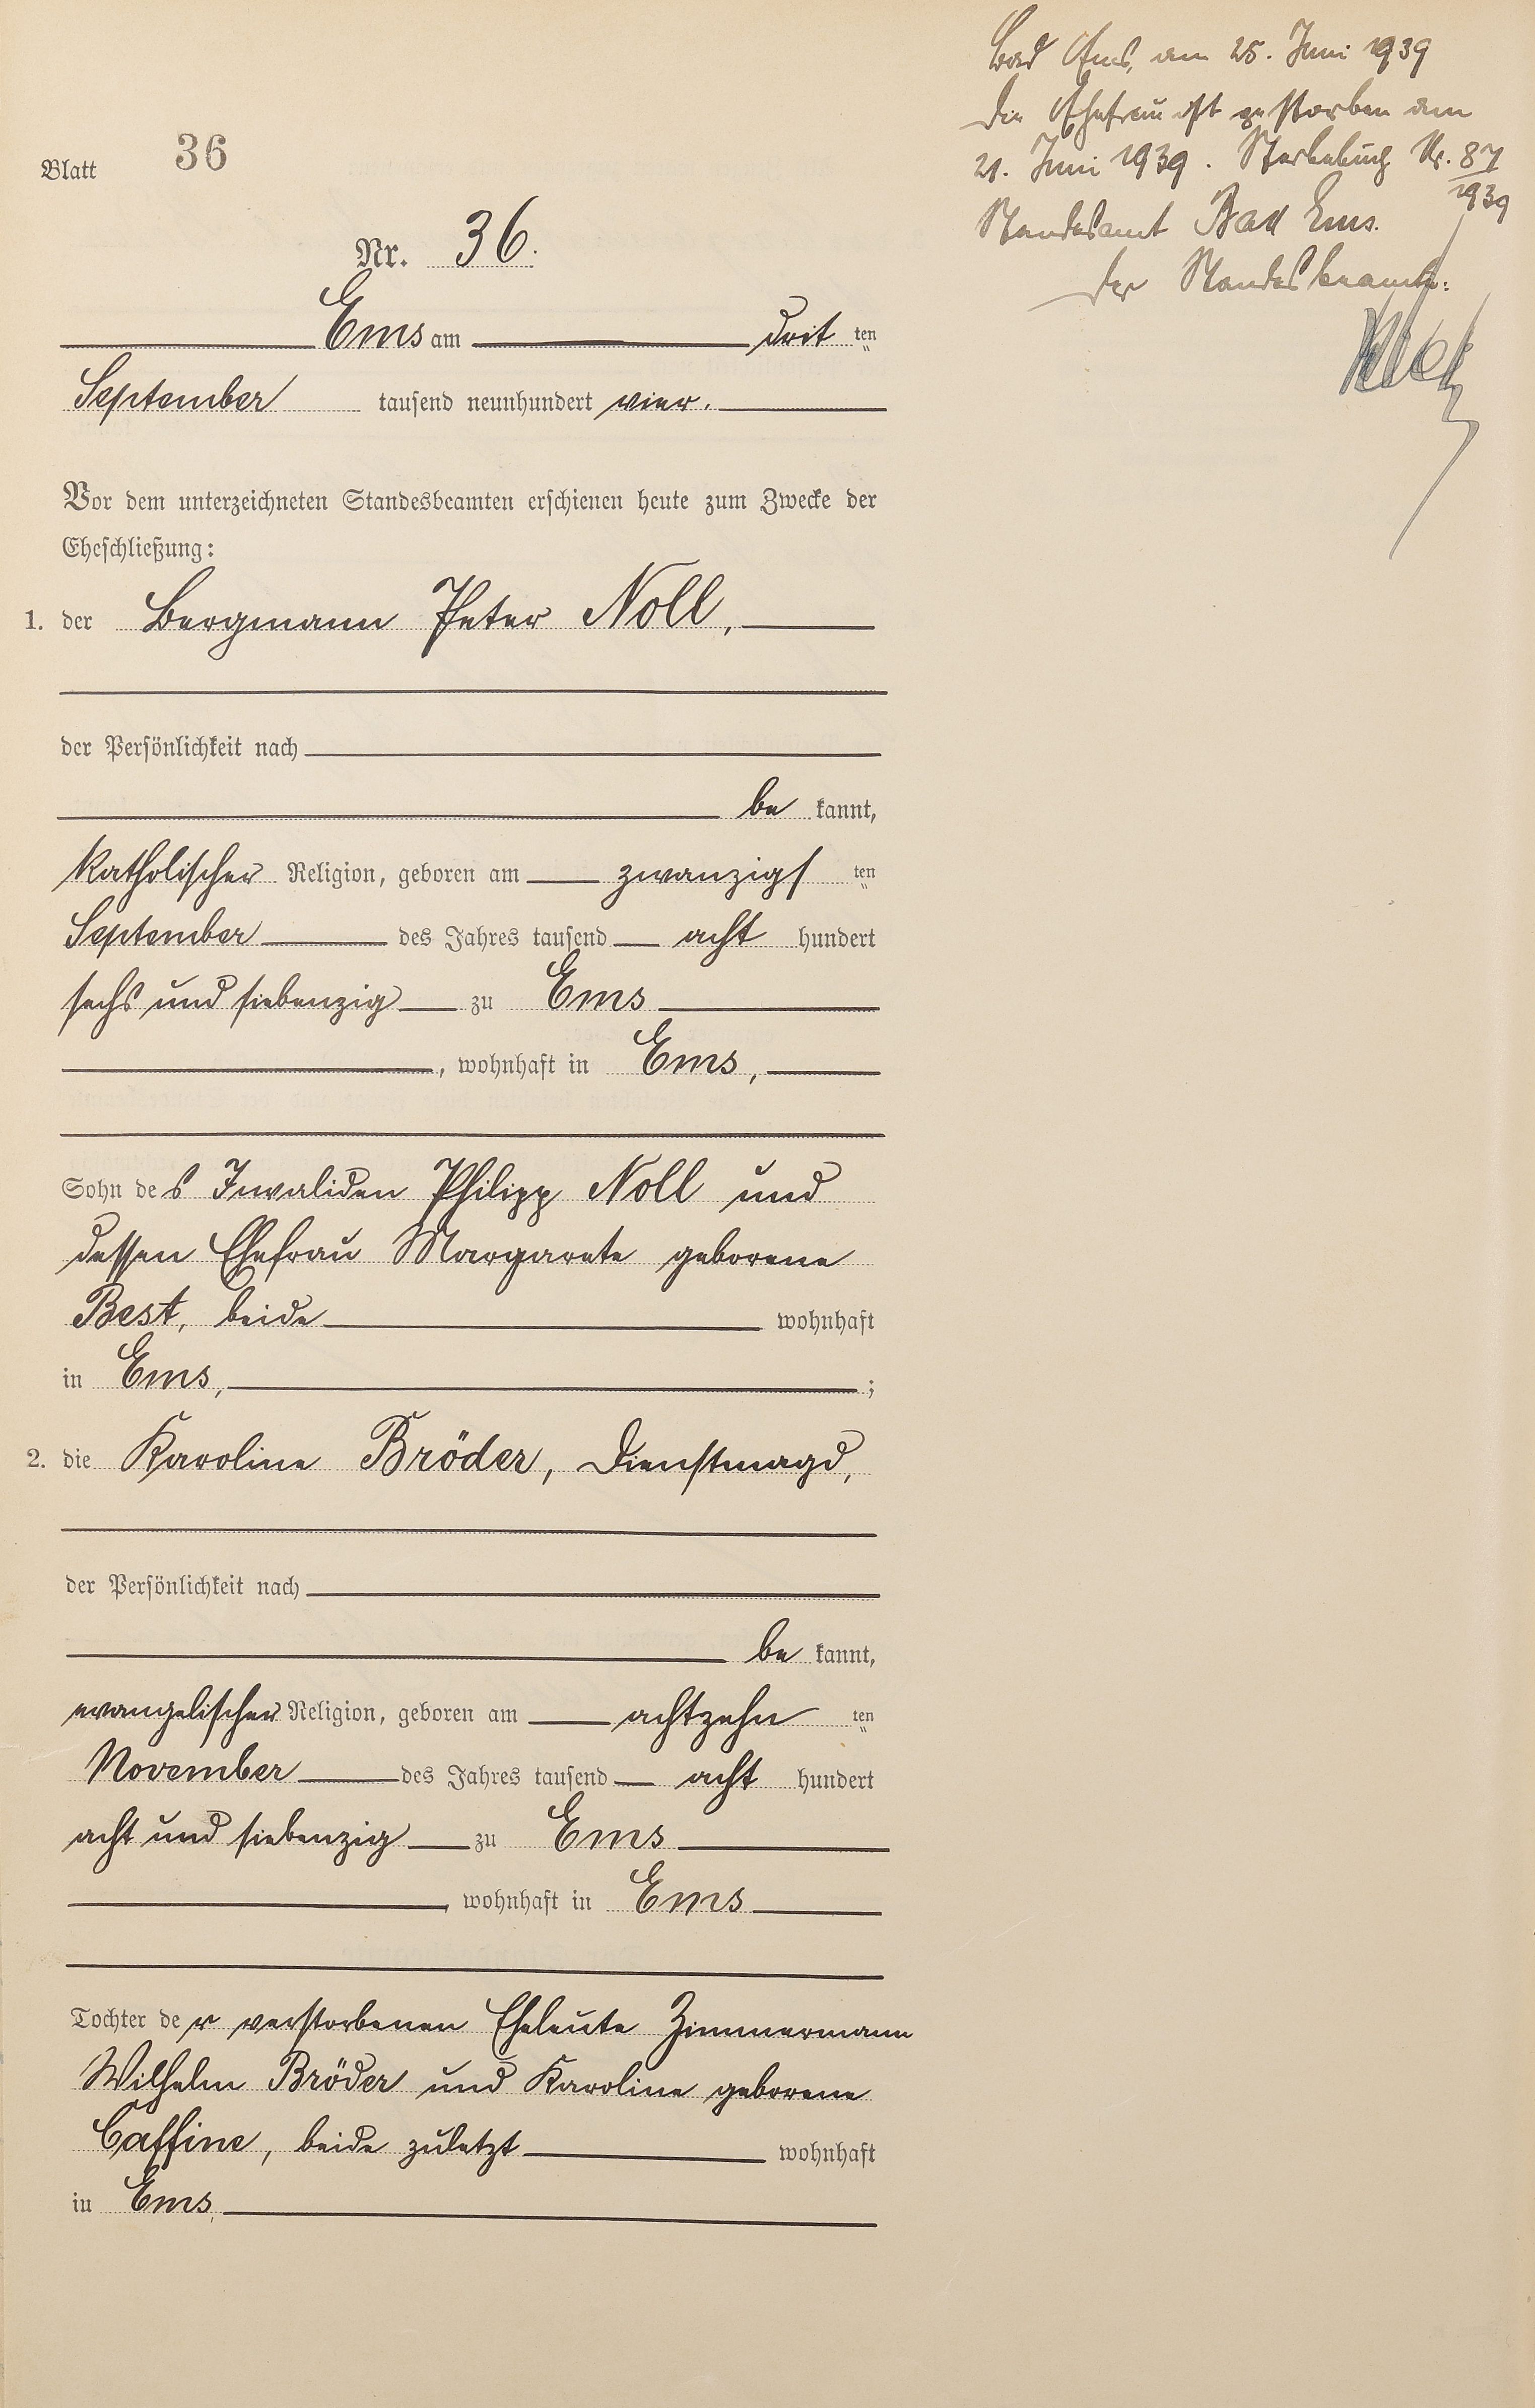 Blatt 36
Nr. 36.
Ems am dritten
September tausend neunhundert vier.
Vor dem unterzeichneten Standesbeamten erschienen heute zum Zwecke der
Eheschließung:
1. der Bergmann Peter Noll,
der Persönlichkeit nach
bekannt,
katholischer Religion, geboren am zwanzigsten
September des Jahres tausend acht hundert
sechs und siebenzig zu Ems
, wohnhaft in Ems,
Sohn des Invaliden Philipp Noll und
dessen Ehefrau Margarete geborene
Best, beide wohnhaft
in Ems, ;
2. die Karoline Bröder, Dienstmagd,
der Persönlichkeit nach
bekannt,
evangelischer Religion, geboren am achtzehnten
November des Jahres tausend acht hundert
acht und siebenzig zu Ems
, wohnhaft in Ems
Tochter der verstorbenen Eheleute Zimmermann
Wilhelm Bröder und Karoline geborene
Caffine, beide zuletzt wohnhaft
in Ems,
Bad Ems, am 25. Juni 1939
Die Ehefrau ist gestorben am
21. Juni 1939. Sterbebuch Nr. 87/1939
Standesamt Bad Ems.
Der Standesbeamte: